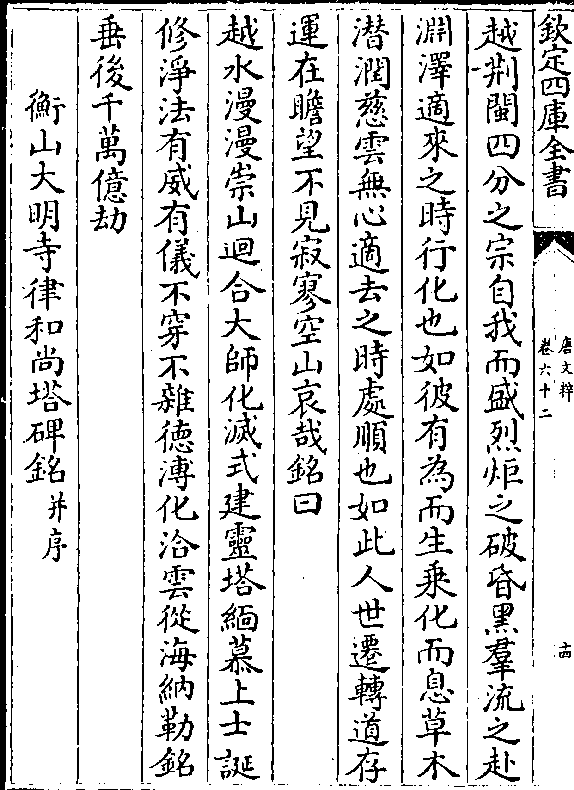 欽定四庫全書
唐文粹
卷六十二
十四
越荆閩四分之宗自我而盛烈炬之破昏黑羣流之赴
淵澤適來之時行化也如彼有為而生乗化而息草木
潛潤慈雲無心適去之時處順也如此人世遷轉道存
運在瞻望不見寂寥空山哀哉銘曰
越水漫漫崇山迴合大師化滅式建靈塔緬慕上士誕
修淨法有威有儀不穿不雜德溥化洽雲從海納勒銘
垂後千萬億劫
衡山大明寺律和尚塔碑銘并序